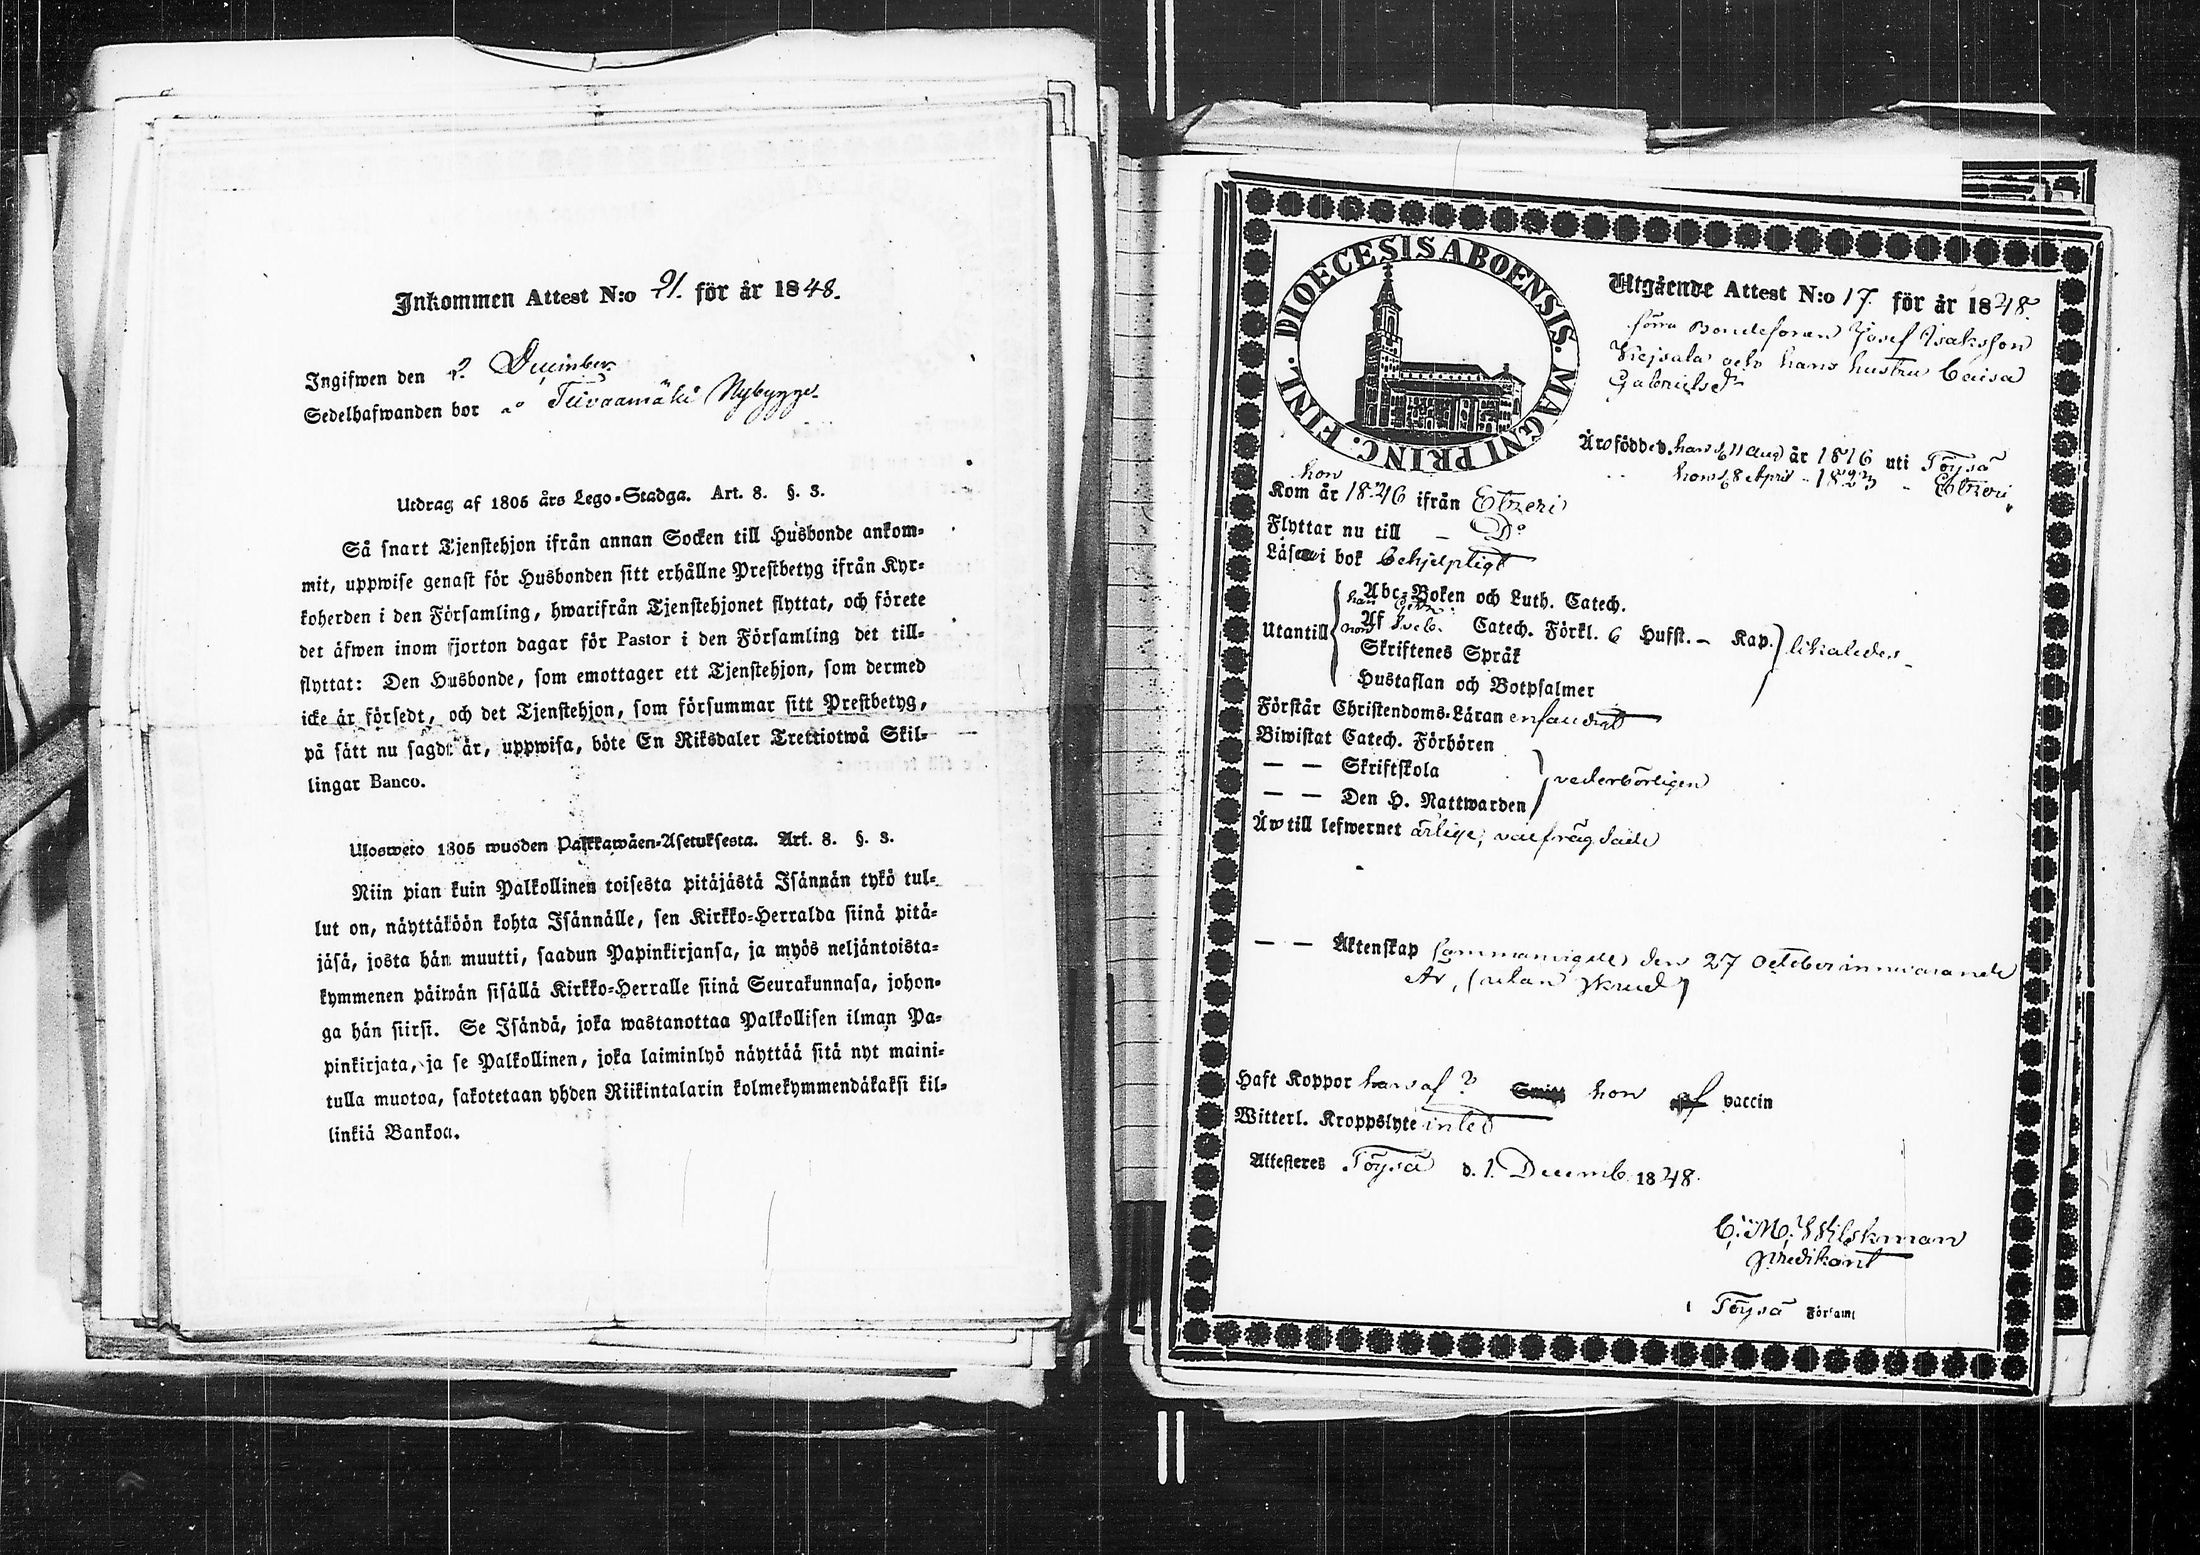 Inkommen Attest N:o 21. för år 1848.
Ingifwen den 2. December
Sedelhafwanden bor på Tiivaamäki Nybygge
Utdrag af 1805 års Lego-Stadga. Art. 8. §. 3.
Så snart Tjenstehjon ifrån annan Socken till Husbonde ankom-
mit, uppwise genast för Husbonden sitt erhållne Prestbetyg ifrån Kyr-
koherden i den Församling, hwarifrån Tjenstehjonet flyttat, och förete
det äfwen inom fjorton dagar för Pastor i den Församling det till-
flyttat: Den Husbonde, som emottager ett Tjenstehjon, som dermed
icke är försedt, och det Tjenstehjon, som försummar sitt Prestbetyg,
på sätt nu sagdt är, uppwisa, böte En Riksdaler Trettiotwå Skil-
lingar Banco.
Ulosweto 1805 wuoden Palkkawäen-Asetuksesta. Art. 8. §. 3.
Niin pian kuin Palkollinen toisesta pitäjästä Isännän tykö tul-
lut on, näyttäköön kohta Isännälle, sen Kirkko-Herralda siinä pitä-
jäsä, josta hän muutti, saadun Papinkirjansa, ja myös neljäntoista-
kymmenen päiwän sisällä Kirkko-Herralle siinä Seurakunnasa, johon-
ga hän siirsi. Se Isändä, joka wastanottaa Palkollisen ilman Pa-
pinkirjata, ja se Palkollinen, joka laiminlyö näyttää sitä nyt maini-
tulla muotoa, sakotetaan yhden Riikintalarin kolmekymmendäkaksi kil-
linkiä Bankoa.
DIOECESIS ABOENSIS. MAGNI PRINC. FINL.
Utgående Attest N:o 17. för år 1848.
förra Bondesonen Josef Isaksson
och hans hustru Caisa
Gabrielsdr
Äro födde han d. 11 Aug år 1816 uti Töysä
hon d. 8 April - 1823 - Etzeri
hon
Kom år 1846 ifrån Etzeri
Flyttar nu till - Do
Läser i bok behjelpligt
Abc-Boken och Luth. Catech.
Utantill Af Sveb. Catech. Förkl. 6 Hufst. - Kap. likaledes
Skriftenes Språk
Hustaflan och Botpsalmer
Förstår Christendoms-Läran enfaldigt
Biwistat Catech. Förhören
— — Skriftskola vederbörligen
— — Den H. Nattwarden
Äro till lefwernet ärlige, välfrägdade
— — Äktenskap sammanvigde den 27 October innevarande
År, (utan skrud)
Haft Koppor han af ? hon af vaccin
Witterl. Kroppslyte intet
Attesteres Töysä d. 1. Decemb. 1848.
C. M. Wilskman
Predikant
i Töysä Församl